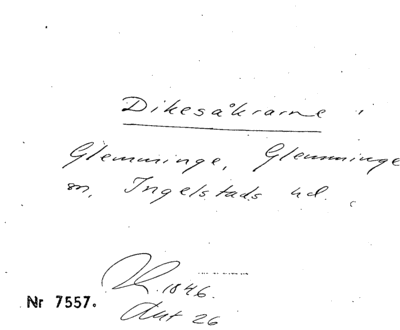 Dikesåkrarne
Glemminge, Glemminge
sn, Ingelstads hd.
1846.
Nr 7557.
Akt 26